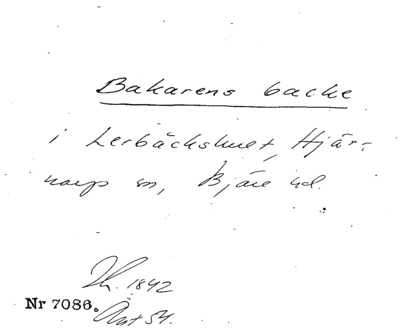 Bakarens backe
i Lerbäckshult, Hjär-
narp sn, Bjäre hd.
Th. 1842
Nr 7086.
Ant 54.